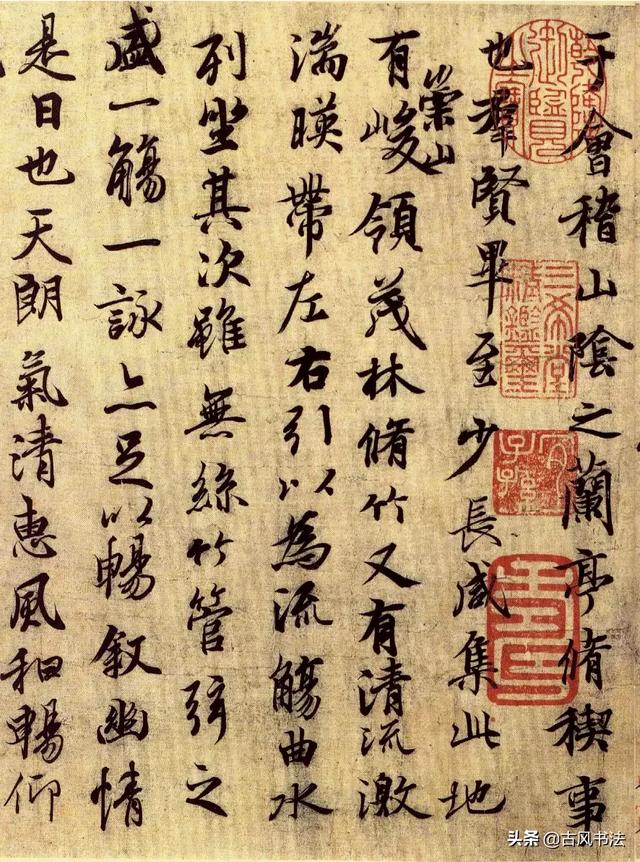 于會稽山陰之蘭亭脩稧事
也羣賢畢至少長咸集此地
有崇山峻領茂林脩竹又有清流激
湍暎帶左右引以為流觴曲水
列坐其次雖無絲竹管弦之
盛一觴一詠亦足以暢叙幽情
是日也天朗氣清惠風和暢仰
三希堂精鑑璽
宜子孫
頭条 @古风书法